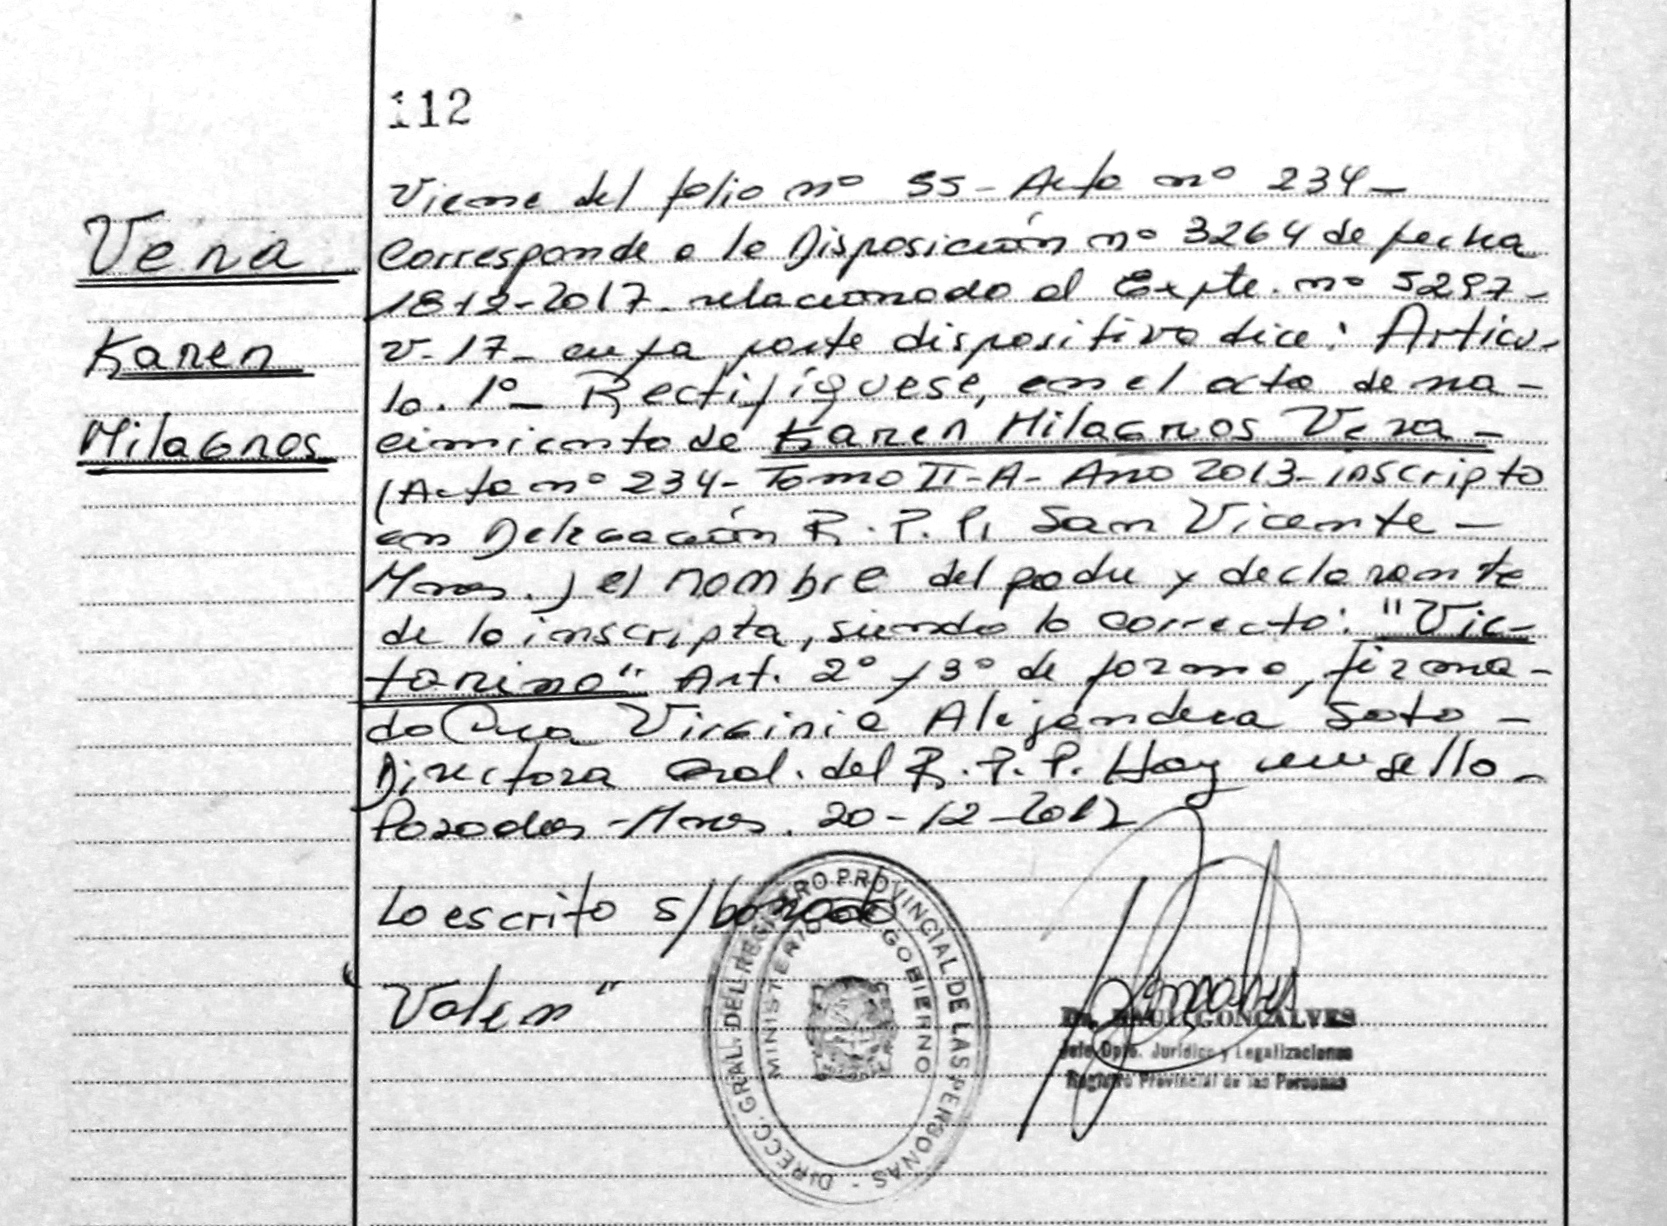 112
Vera
Karen
Milagros
Viene del folio nº 55- Acta nº 234-
Corresponde a la Disposición nº 3264 de fecha
18-12-2017 relacionado al Expte. nº 5297-
V-17- cuya parte dispositiva dice: Artícu-
lo. 1º- Rectifíquese, en el acta de na-
cimiento de Karen Milagros Vera-
(Acta nº 234- Tomo II-A- Año 2013- inscripta
en Delegación R.P.P. San Vicente-
Mnes.) el nombre del padre y declarante
de la inscripta, siendo lo correcto: "Vic-
torino" Art. 2º y 3º de forma, firma-
do Virginia Alejandra Soto-
Directora Gral. del R.P.P. Hay un sello-
Posadas-Mnes. 20-12-2017
Lo escrito s/borrado
Valen"
DIRECC. GRAL. DEL REGISTRO PROVINCIAL DE LAS PERSONAS -
MINISTERIO GOBIERNO
Dr. RAUL GONCALVES
Jefe Dpto. Jurídico y Legalizaciones
Registro Provincial de las Personas